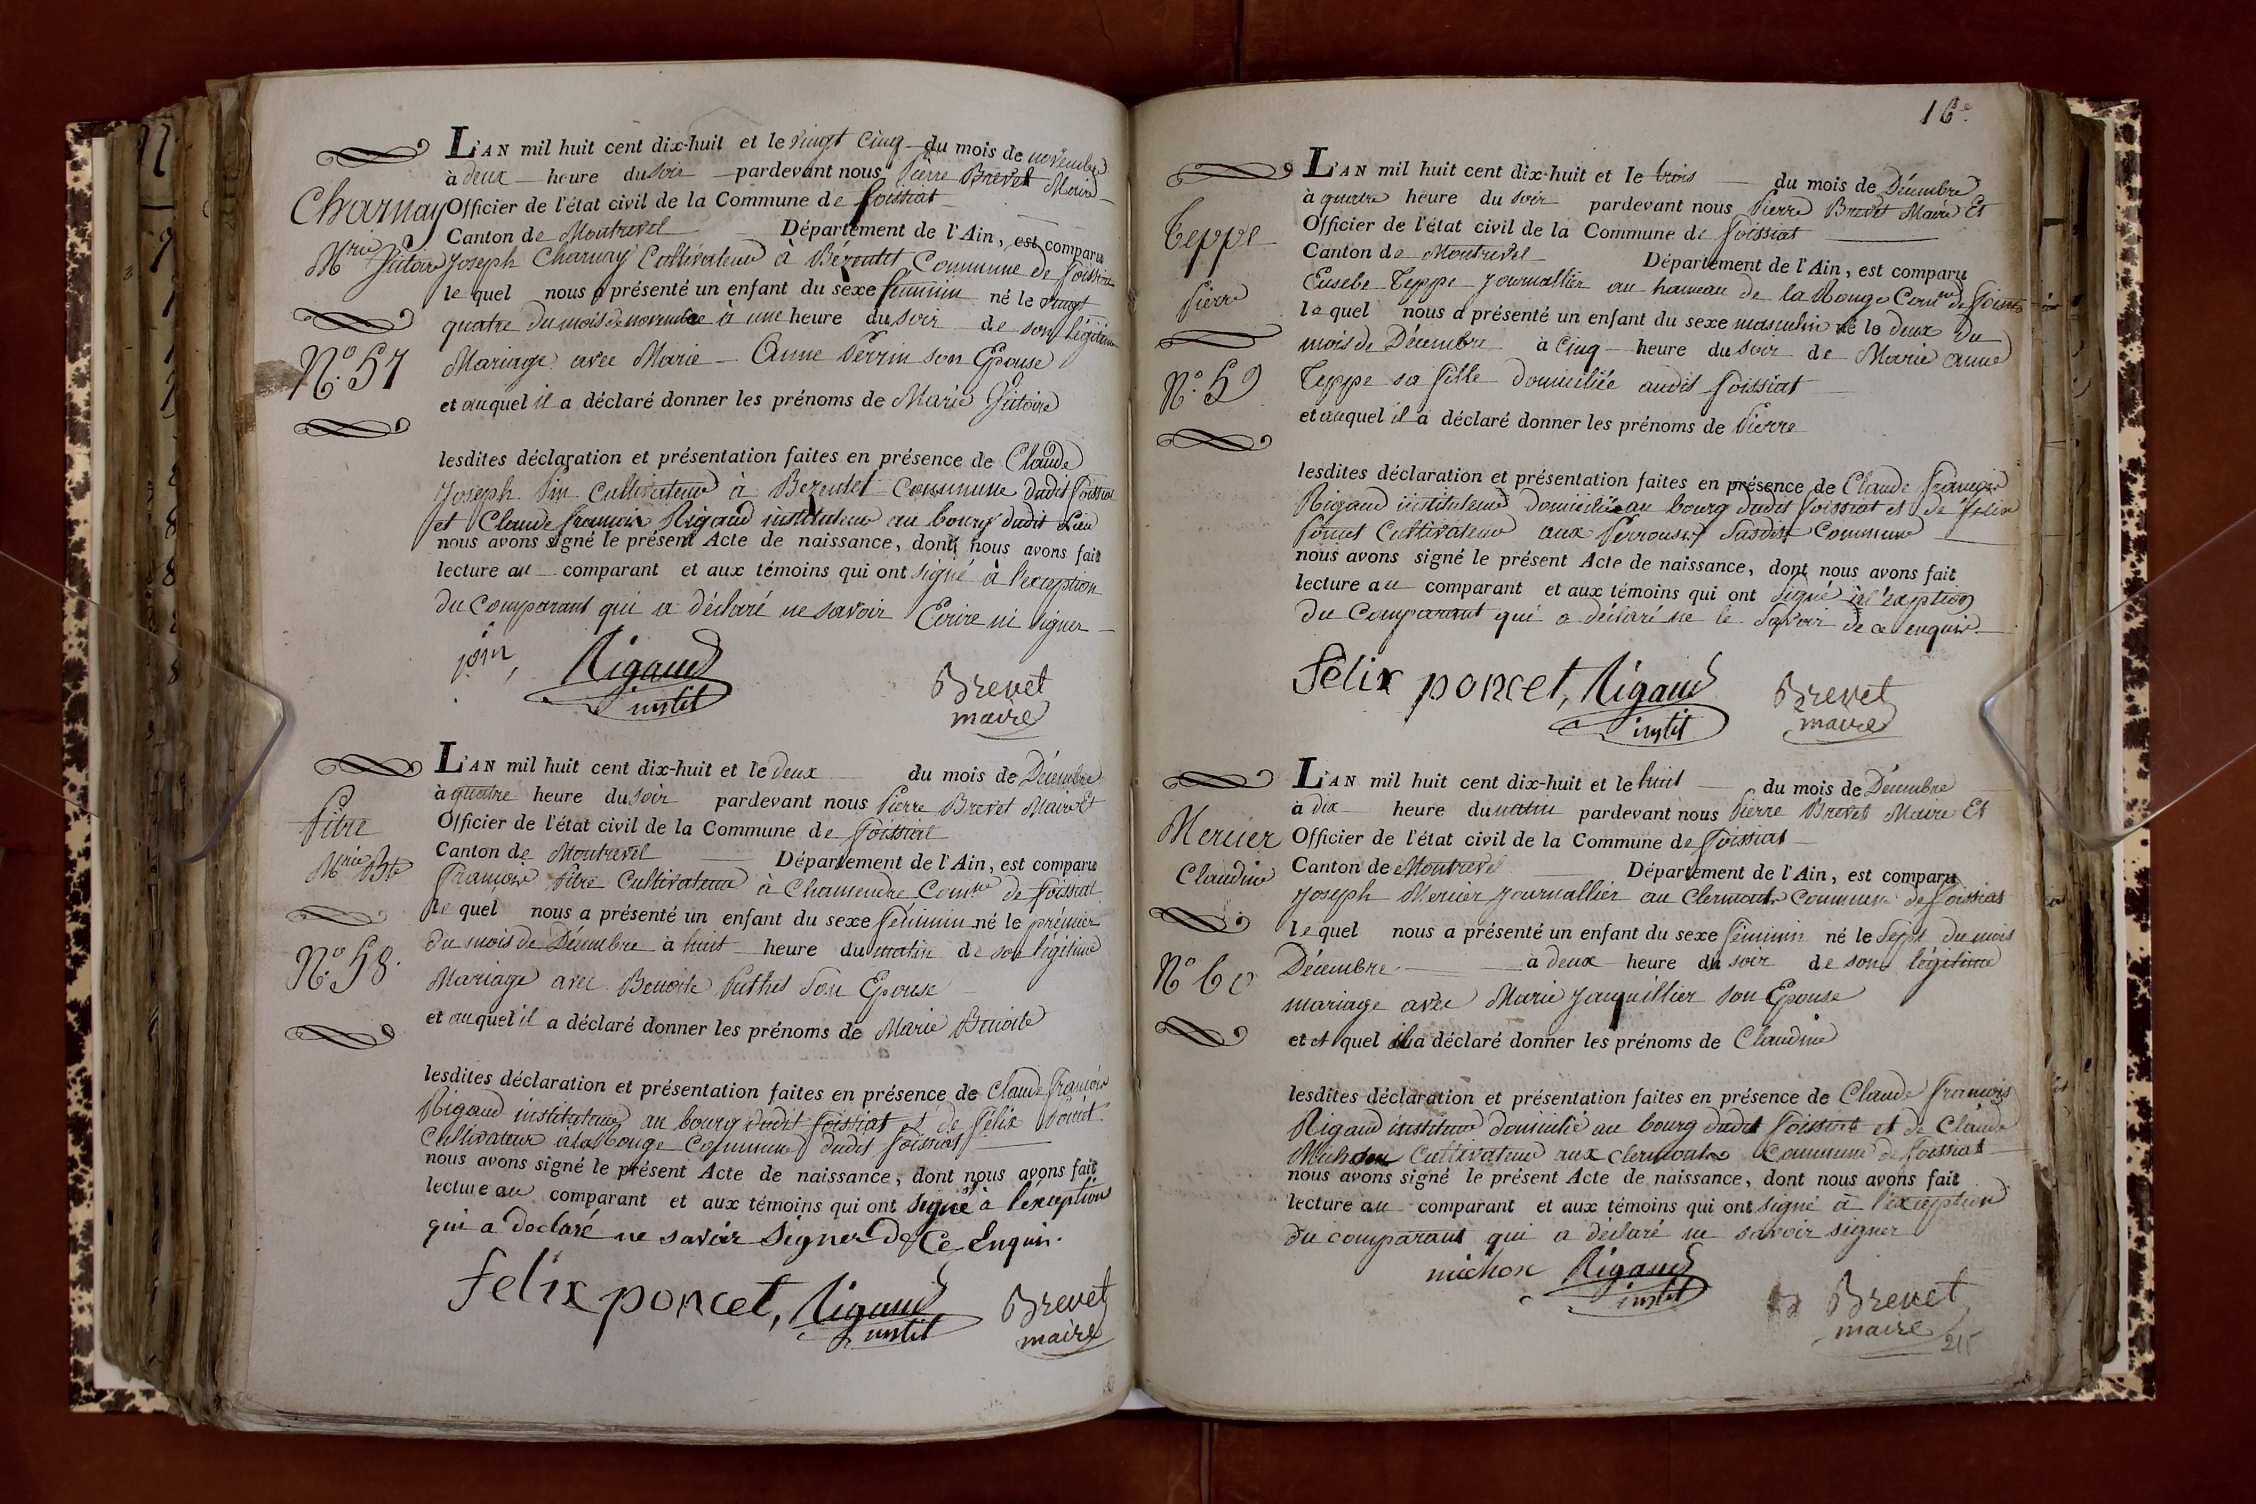 L'AN mil huit cent dix-huit et le vingt cinq du mois de novembre
à deux heure du soir pardevant nous Pierre Brevet Maire
Charnay
Officier de l'état civil de la Commune de foissiat
Canton de Montrevel Département de l'Ain, est comparu
Mrie
Joseph Charnay Cultivateur à Bézentet Commune de foissiat
le quel nous a présenté un enfant du sexe féminin né le vingt
quatre du mois de novembre à une heure du soir de son légitime
No. 57
Mariage avec Marie Anne Perrin son Epouse
et auquel il a déclaré donner les prénoms de Marie
lesdites déclaration et présentation faites en présence de Claude
Joseph Pin Cultivateur à Bezentet Commune dudit foissiat
et Claude françois Rigaud instituteur au bourg dudit Lieu
nous avons signé le présent Acte de naissance, dont nous avons fait
lecture au comparant et aux témoins qui ont signé à l'exception
du Comparant qui a déclaré ne savoir Ecrire ni signer
Rigaud
instit
Brevet
maire
L'AN mil huit cent dix-huit et le deux du mois de Décembre
à quatre heure du soir pardevant nous Pierre Brevet Maire Et
Pitre
Officier de l'état civil de la Commune de foissiat
Canton de Montrevel Département de l'Ain, est comparu
Mrie Bte
François Pitre Cultivateur à Chamendre Comne de foissiat
le quel nous a présenté un enfant du sexe féminin né le prémier
du mois de Décembre à huit heure du matin de son légitime
No. 58.
Mariage avec Benoite Puthet Son Epouse
et auquel il a déclaré donner les prénoms de Marie Benoite
lesdites déclaration et présentation faites en présence de Claude françois
Rigaud instituteur au bourg dudit foissiat et de félix Poncet
Cultivateur à la Rouge Commune dudit foissiat
nous avons signé le présent Acte de naissance, dont nous avons fait
lecture au comparant et aux témoins qui ont signé à l'exception
qui a declaré ne savoir signer De Ce Enquis.
felix poncet, Rigaud
instit
Brevet
maire
16e
L'AN mil huit cent dix-huit et le trois du mois de Décembre
à quatre heure du soir pardevant nous Pierre Brevet Maire Et
Teppe
Officier de l'état civil de la Commune de foissiat
Canton de Montrevel Département de l'Ain, est comparu
Pierre
Eusebe Teppe Journallier au hameau de la Rouge Comne de foissiat
le quel nous a présenté un enfant du sexe masculin né le deux du
mois de Décembre à Cinq heure du soir de Marie anne
No. 59
Teppe sa fille domiciliée audit foissiat
et auquel il a déclaré donner les prénoms de Pierre
lesdites déclaration et présentation faites en présence de Claude françois
Rigaud instituteur Domicilié au bourg dudit foissiat et de félix
Poncet Cultivateur aux Susdite Commune
nous avons signé le présent Acte de naissance, dont nous avons fait
lecture au comparant et aux témoins qui ont signé à l'exception
du Comparant qui a déclaré ne le Savoir de ce enquis
felix poncet, Rigaud
instit
Brevet
maire
L'AN mil huit cent dix-huit et le huit du mois de Décembre
à dix heure du matin pardevant nous Pierre Brevet Maire Et
Mercier
Officier de l'état civil de la Commune de foissiat
Claudine
Canton de Montrevel Département de l'Ain, est comparu
Joseph Mercier Journallier au Clermont Commune de foissiat
le quel nous a présenté un enfant du sexe féminin né le Sept du mois
Décembre à deux heure du soir de son légitime
No 60
mariage avec Marie Jaquillier son Epouse
et et quel il a déclaré donner les prénoms de Claudine
lesdites déclaration et présentation faites en présence de Claude francois
Rigaud instituteur domicilié au bourg dudit foissiat et de Claude
Michon Cultivateur aux Clermont Commune de foissiat
nous avons signé le présent Acte de naissance, dont nous avons fait
lecture au comparant et aux témoins qui ont signé à l'exception
du comparant qui a déclaré ne savoir signer
michon Rigaud
instit
Brevet
maire
215